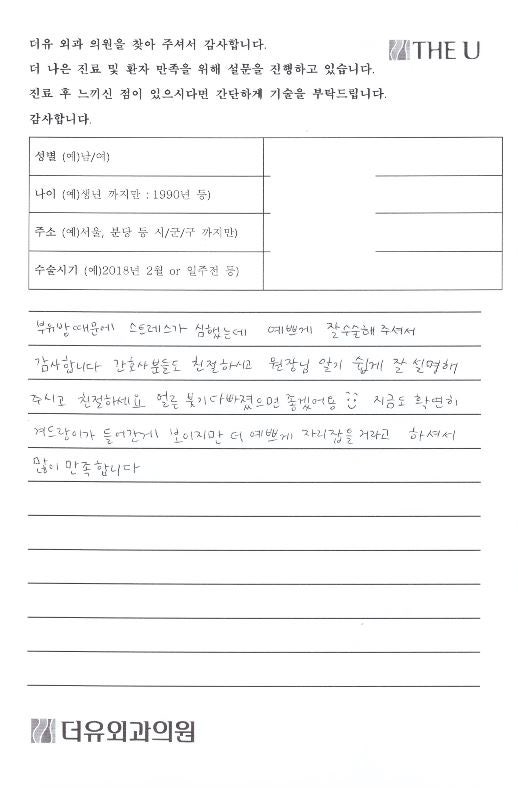 더유 외과 의원을 찾아 주셔서 감사합니다.
THE U
더 나은 진료 및 환자 만족을 위해 설문을 진행하고 있습니다.
진료 후 느끼신 점이 있으시다면 간단하게 기술을 부탁드립니다.
감사합니다.
성별 (예)남/여)
나이 (예)생년 까지만 : 1990년 등)
주소 (예)서울, 분당 등 시/군/구 까지만)
수술시기 (예)2018년 2월 or 일주전 등)
부유방때문에 스트레스가 심했는데 예쁘게 잘수술해 주셔서
감사합니다 간호사분들도 친절하시고 원장님 알기 쉽게 잘 설명해
주시고 친절하세요 얼른 붓기다빠졌으면 좋겠어용 :) 지금도 확연히
겨드랑이가 들어간게 보이지만 더 예쁘게 자리잡을거라고 하셔서
많이 만족합니다
더유외과의원